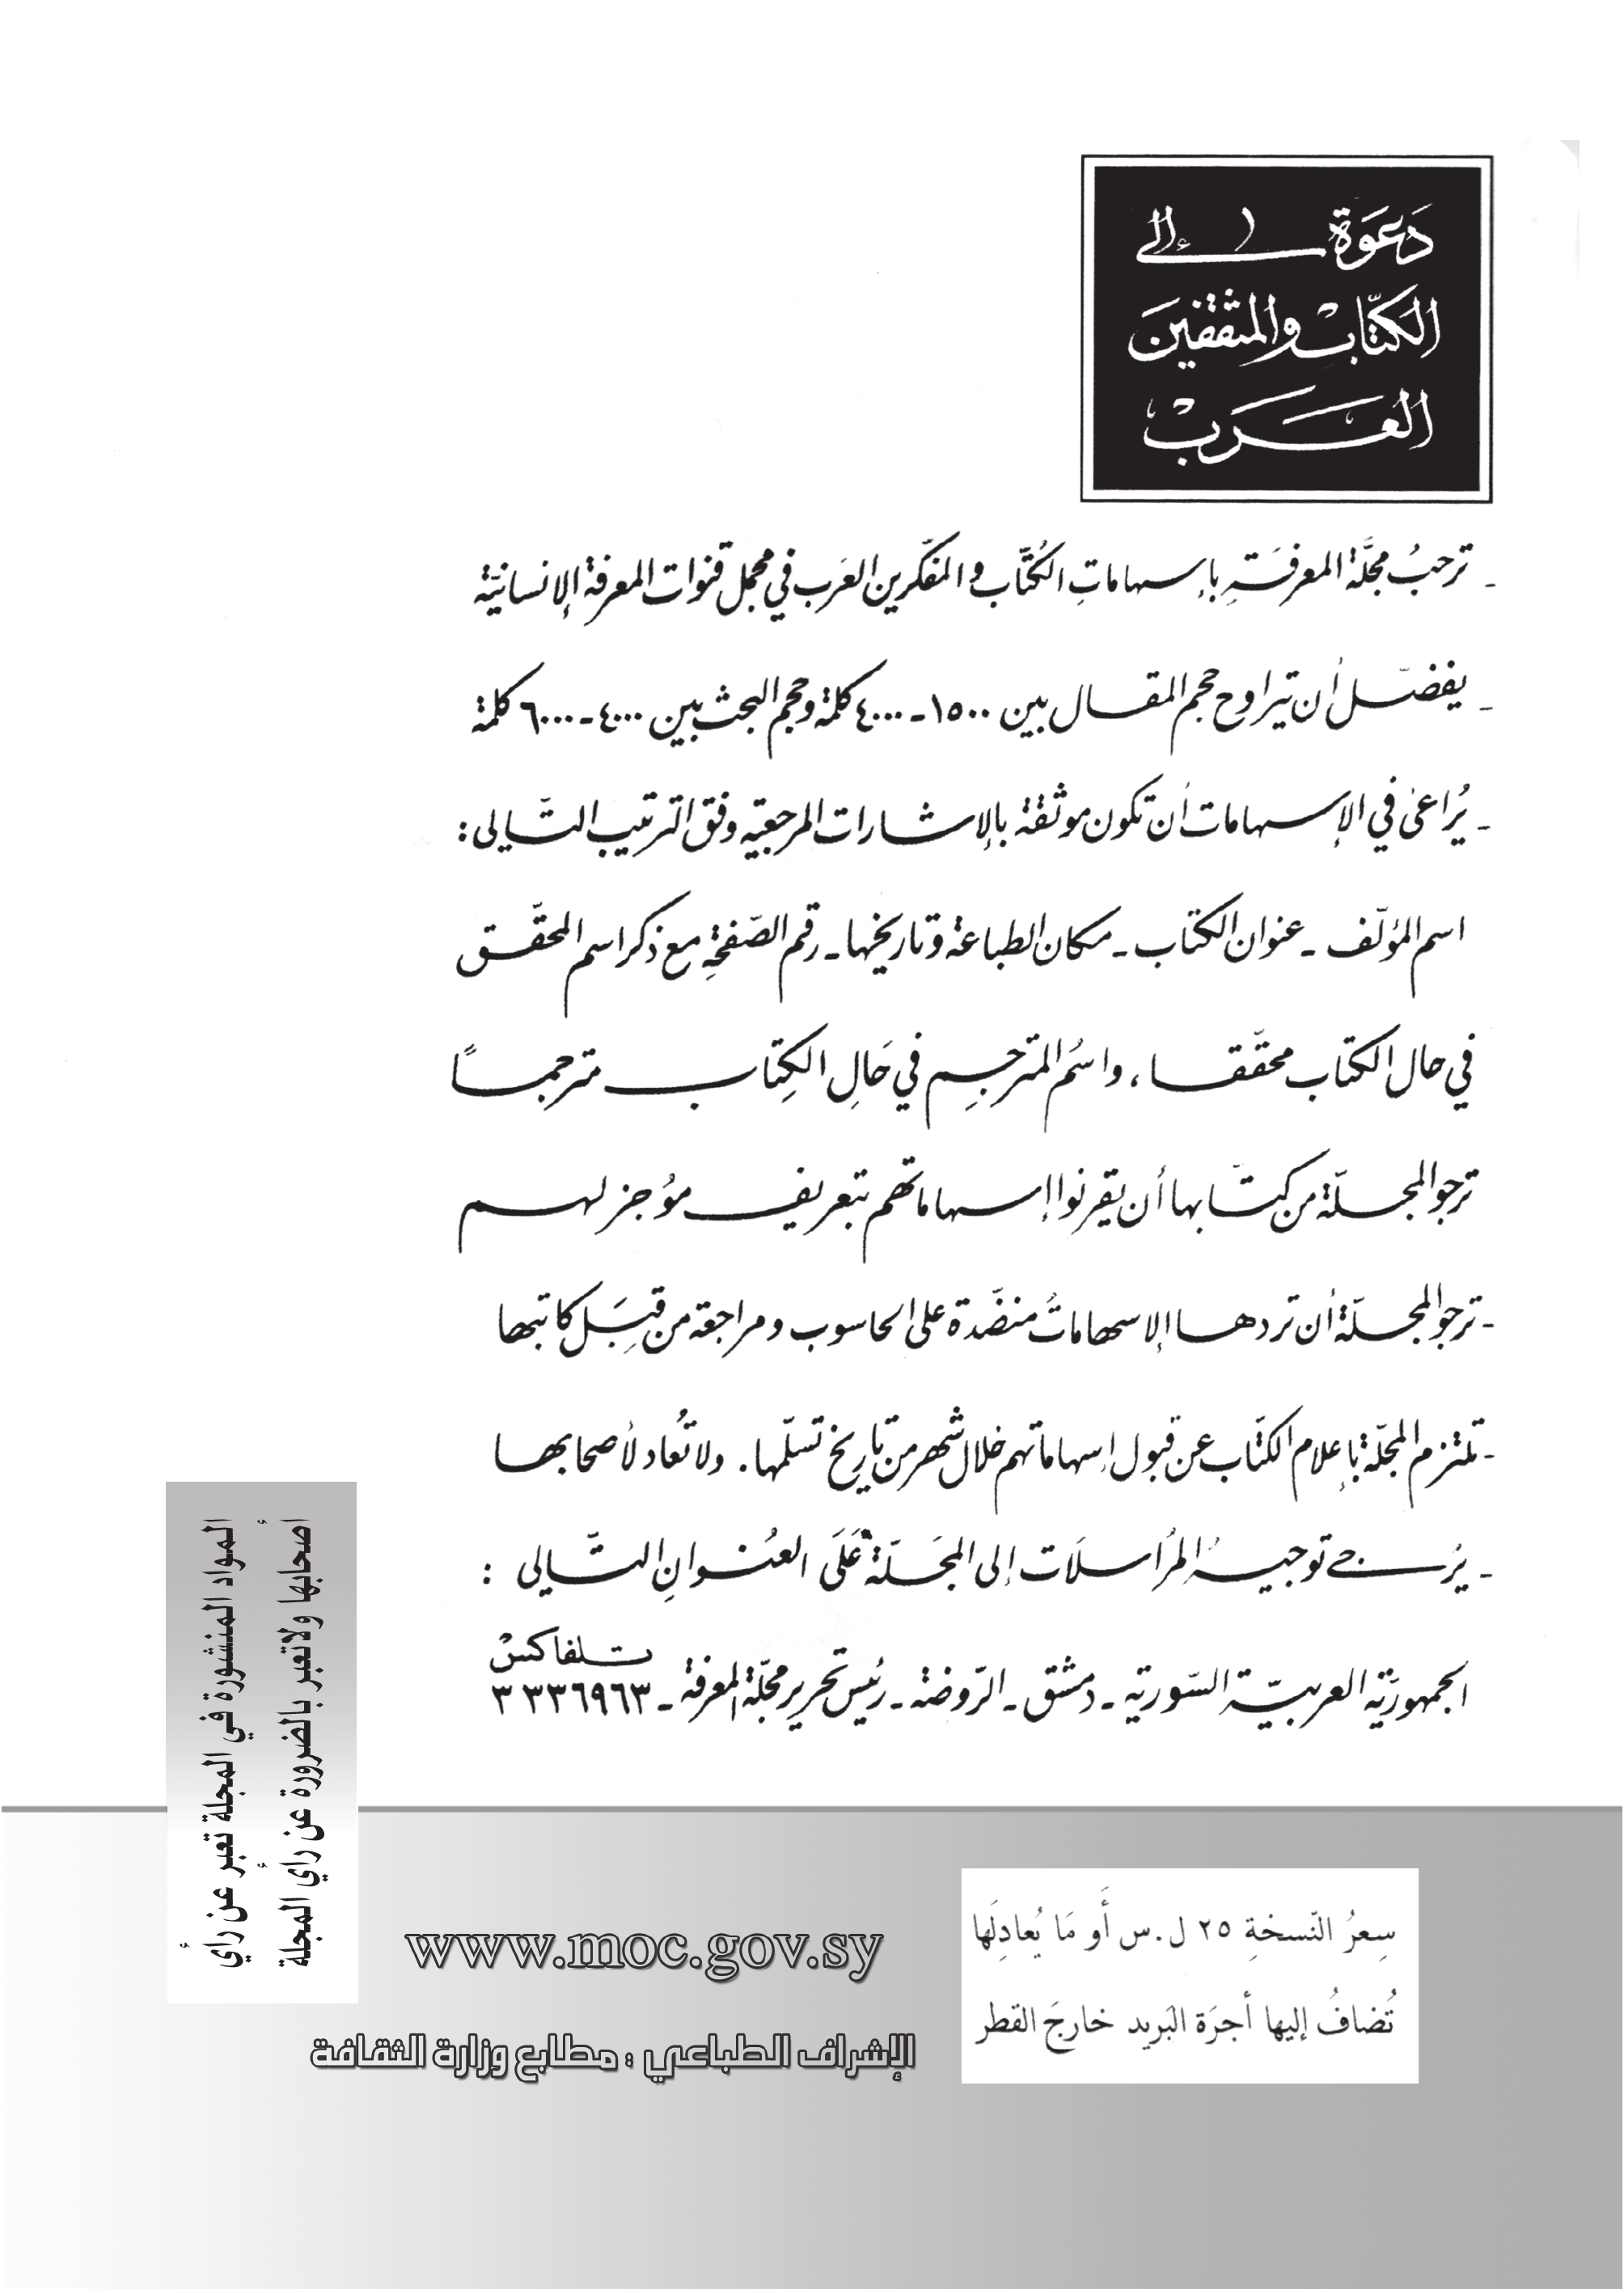 دَعوَة إلى
الكتّاب والمثقفين
العَرَبْ
- ترحبُ مجلَّة المعرفَةِ بإسهاماتِ الكُتّاب والمفكّرين العَرب في مجمل قنوات المعرفة الإنسانيَّة
- يفضّل أن يتراوح حجم المقال بين ١٥٠٠ - ٤٠٠٠ كلمة وحجم البحث بين ٤٠٠٠ - ٦٠٠٠ كلمة
- يُراعى في الإسهامات أن تكون موثقة بالإشارات المرجعية وفق الترتيب التّالي :
اسم المؤلّف - عنوان الكتاب - مكان الطباعة وتاريخها - رقم الصّفحةِ مع ذكر اسم المحقّق
في حال الكتاب محققا ، واسُم المترجِم في حَالِ الكِتاب مترجماً
ترجو المجلّة من كتّابها أن يقرنوا إسهاماتهم بتعريف مُوجز لهم
- ترجو المجلّة أن تردها الإسهاماتُ منضّدة على الحاسوب ومراجعة من قِبَل كاتبها
- تلتزم المجلّة بإعلام الكتّاب عن قبول إسهاماتهم خلال شهر من تاريخ تسلّمها . ولا تُعاد لأصحابها
- يُرجى توجيهُ المُراسلَات إلى المجَلّة عَلَى العُنوانِ التّالي :
الجمهوريَّة العربيّة السّورية - دمشق - الرّوضة - رئيس تحرير مجلّة المعرفة - تلفاكس ٣٣٣٦٩٦٣
المواد المنشورة في المجلة تعبر عن رأي
أصحابها ولاتعبر بالضرورة عن رأي المجلة
سِعرُ النّسخةِ ٢٥ ل.س أَو مَا يُعادِلَها
تُضافُ إليها أجرَة البَريد خارجَ القطر
www.moc.gov.sy
الإشراف الطباعي : مطابع وزارة الثقافة